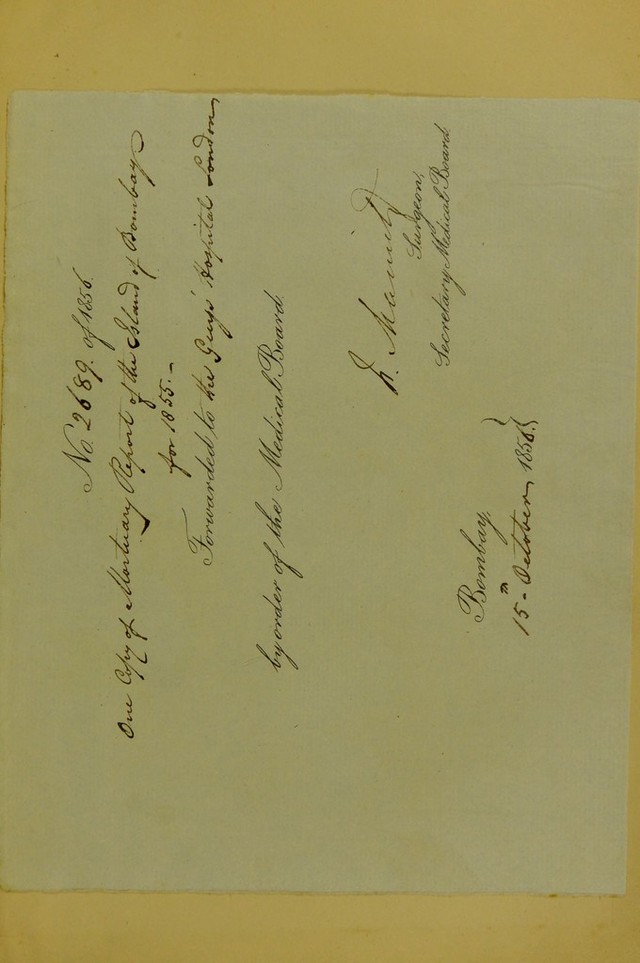 No. 2689. of 1856.
One Copy of Mortuary Report of the Island of Bombay
for 1855.–
Forwarded to the Guys' Hospital London
by order of the Medical Board.
Surgeon,
Secretary Medical Board.
Bombay,
15th October, 1856.